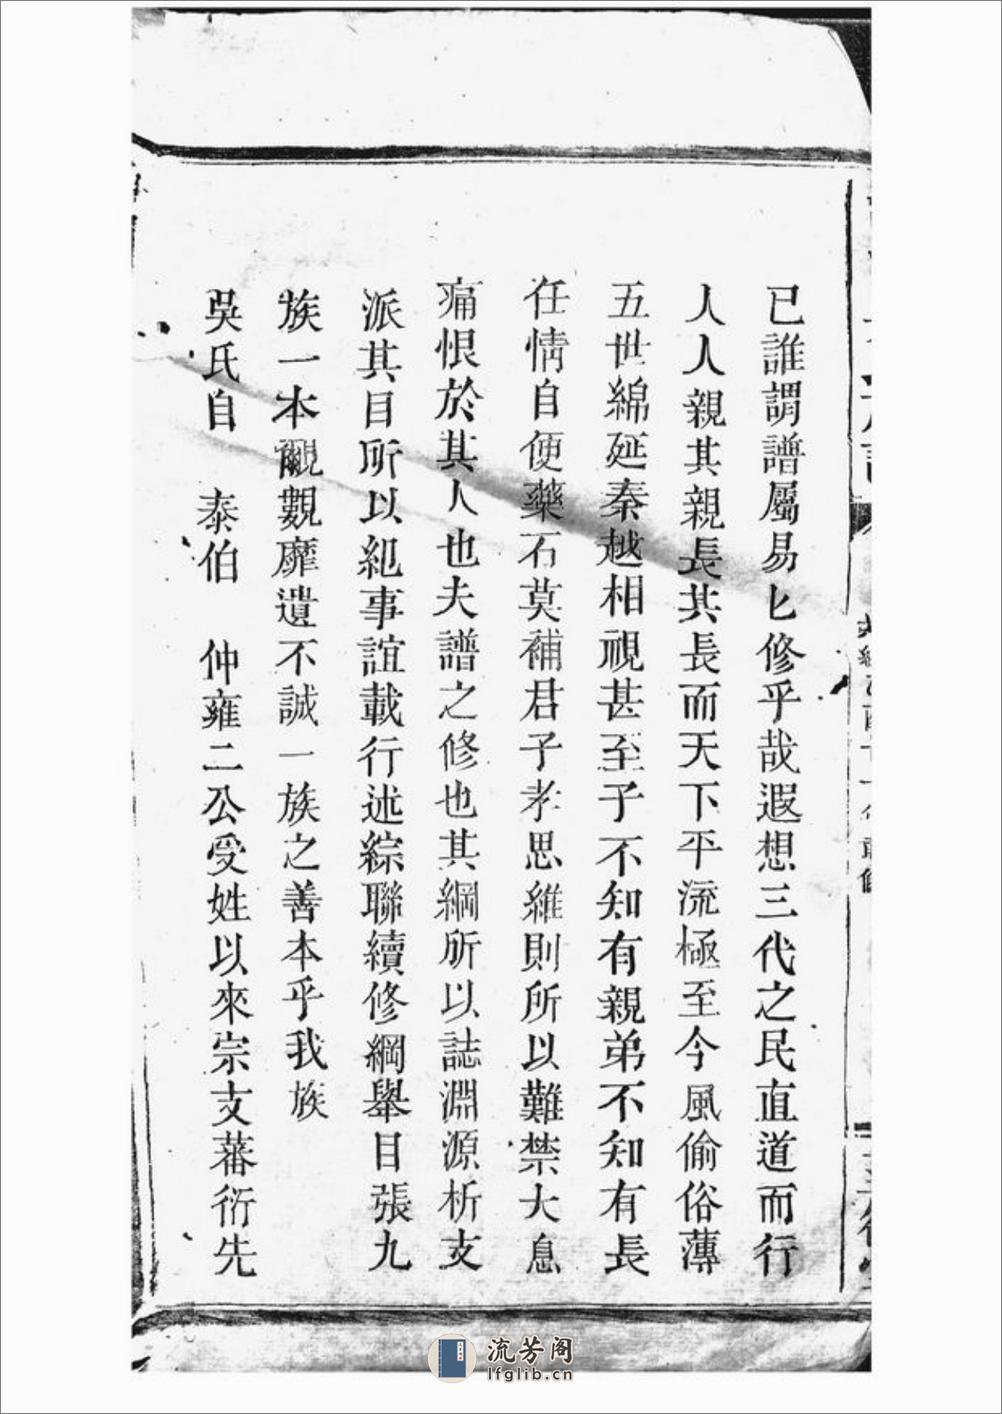 已誰謂譜屬易匕修乎哉遐想三代之民直道而行
人人親其親長其長而天下平流極至今風偷俗薄
五世綿延秦越相視甚至子不知有親弟不知有長
任情自便藥石莫補君子孝思維則所以難禁大息
痛恨於其人也夫譜之修也其綱所以誌淵源析支
派其目所以紀事誼載行述綜聯續修綱舉目張九
族一本覼覶靡遺不誠一族之善本乎我族
吳氏自 泰伯 仲雍二公受姓以來宗支蕃衍先
流芳阁
lfglib.cn